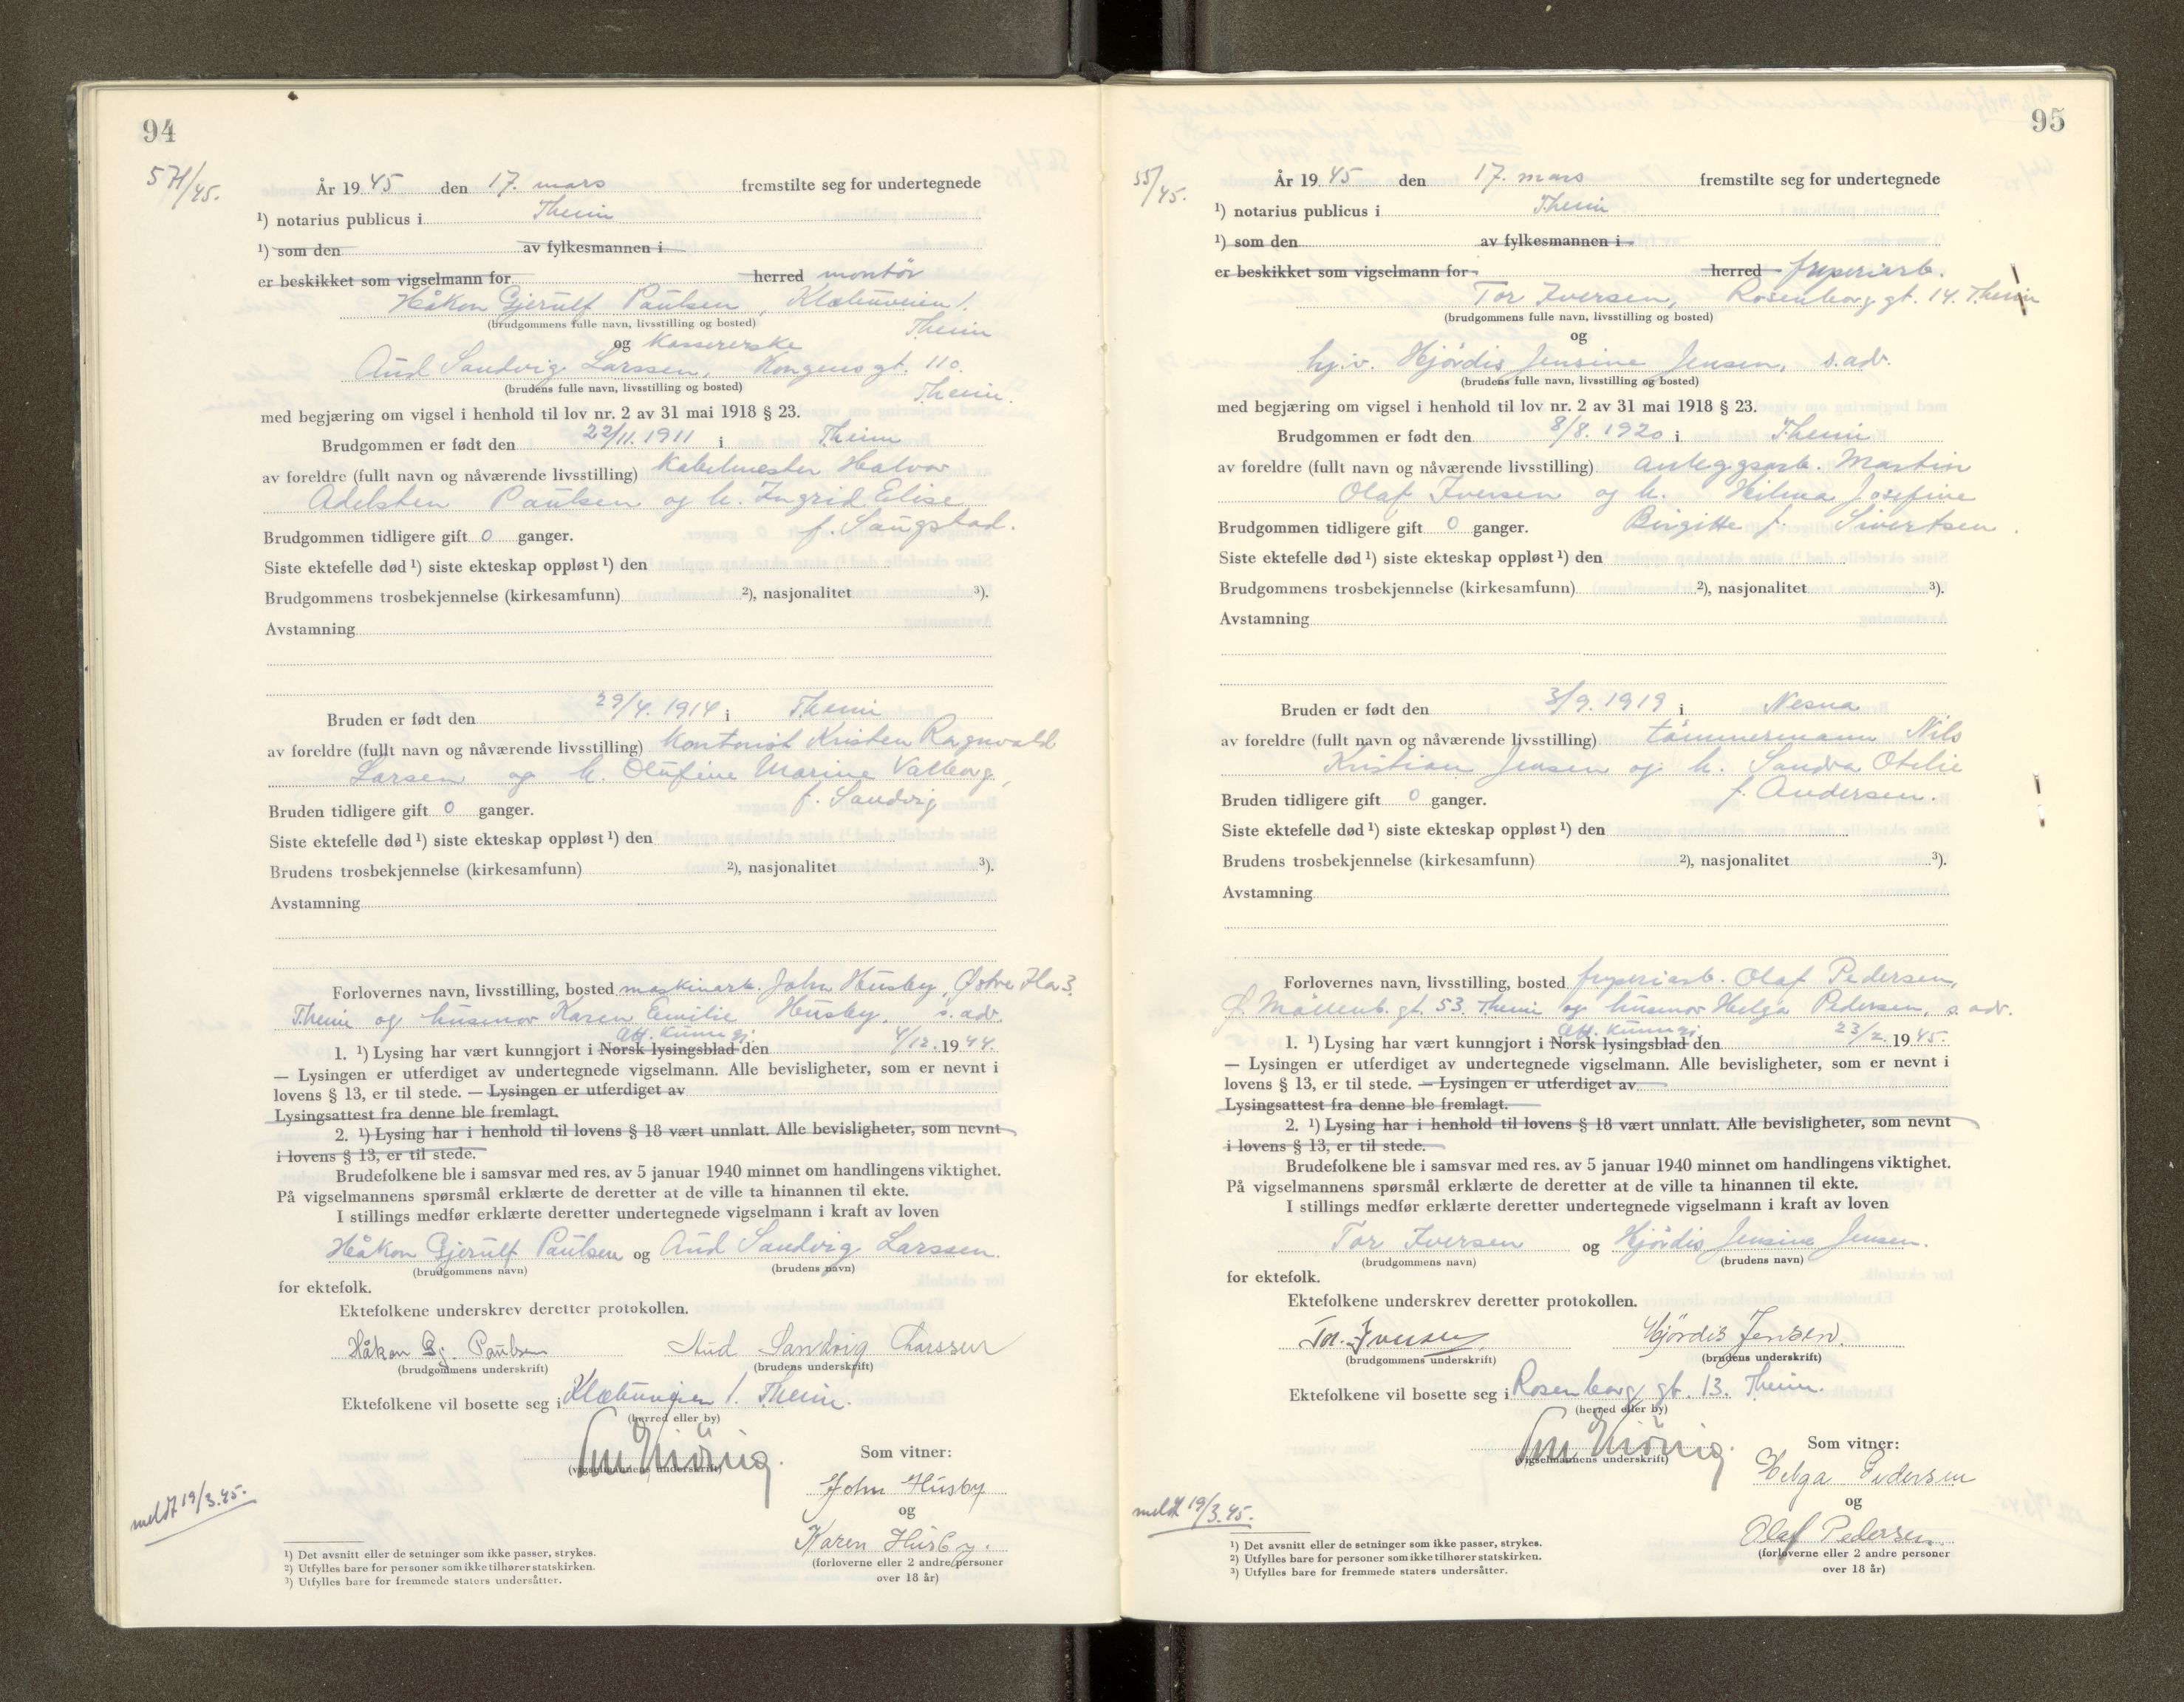 94
57/45.
År 1945 den 17. mars fremstilte seg for undertegnede
¹) notarius publicus i Theim
¹) som den av fylkesmannen i
er beskikket som vigselmann for herred montör
Håkon Gjerulf Paulsen, Klæbuveien 1.
(brudgommens fulle navn, livsstilling og bosted) Theim
og Kassererske
Aud Sandvig Larssen, Kongens gt. 110.
(brudens fulle navn, livsstilling og bosted) Theim.
med begjæring om vigsel i henhold til lov nr. 2 av 31 mai 1918 § 23.
Brudgommen er født den 22/11. 1911 i Theim
av foreldre (fullt navn og nåværende livsstilling) Kabelmester Halvor
Adelsten Paulsen og h. Ingrid Elise
f. Saugstad.
Brudgommen tidligere gift 0 ganger.
Siste ektefelle død ¹) siste ekteskap oppløst ¹) den
Brudgommens trosbekjennelse (kirkesamfunn) ²), nasjonalitet ³).
Avstamning
Bruden er født den 29/4. 1914 i Theim
av foreldre (fullt navn og nåværende livsstilling) Kontorist Kristen Ragnvald
Larsen og h. Olufine Marine Valborg,
f. Sandvig
Bruden tidligere gift 0 ganger.
Siste ektefelle død ¹) siste ekteskap oppløst ¹) den
Brudens trosbekjennelse (kirkesamfunn) ²), nasjonalitet ³).
Avstamning
Forlovernes navn, livsstilling, bosted maskinarb. John Husby, Østre Ila 3.
Theim og husmor Karen Emilie Husby, s. adr.
off. kunngj.
1. ¹) Lysing har vært kunngjort i Norsk lysingsblad den 4/12. 1944.
— Lysingen er utferdiget av undertegnede vigselmann. Alle bevisligheter, som er nevnt i
lovens § 13, er til stede. — Lysingen er utferdiget av
Lysingsattest fra denne ble fremlagt.
2. ¹) Lysing har i henhold til lovens § 18 vært unnlatt. Alle bevisligheter, som nevnt
i lovens § 13, er til stede.
Brudefolkene ble i samsvar med res. av 5 januar 1940 minnet om handlingens viktighet.
På vigselmannens spørsmål erklærte de deretter at de ville ta hinannen til ekte.
I stillings medfør erklærte deretter undertegnede vigselmann i kraft av loven
Håkon Gjerulf Paulsen og Aud Sandvig Larssen.
(brudgommens navn) (brudens navn)
for ektefolk.
Ektefolkene underskrev deretter protokollen.
Håkon Gj. Paulsen Aud Sandvig Larssen
(brudgommens underskrift) (brudens underskrift)
Ektefolkene vil bosette seg i Klæbuveien 1. Theim.
(herred eller by)
(vigselmannens underskrift)
Som vitner:
John Husby
og
Karen Husby.
(forloverne eller 2 andre personer
over 18 år)
meldt 19/3.45.
¹) Det avsnitt eller de setninger som ikke passer, strykes.
²) Utfylles bare for personer som ikke tilhører statskirken.
³) Utfylles bare for fremmede staters undersåtter.
95
55/45.
År 1945 den 17. mars fremstilte seg for undertegnede
¹) notarius publicus i Theim
¹) som den av fylkesmannen i
er beskikket som vigselmann for herred fryseriarb.
Tor Iversen, Rosenborg gt. 14. Theim
(brudgommens fulle navn, livsstilling og bosted)
og
hj.v. Hjördis Jensine Jensen, s. adr.
(brudens fulle navn, livsstilling og bosted)
med begjæring om vigsel i henhold til lov nr. 2 av 31 mai 1918 § 23.
Brudgommen er født den 8/8. 1920 i Theim
av foreldre (fullt navn og nåværende livsstilling) anleggsarb. Martin
Olaf Iversen og h. Hilma Josefine
Birgitte f. Sivertsen.
Brudgommen tidligere gift 0 ganger.
Siste ektefelle død ¹) siste ekteskap oppløst ¹) den
Brudgommens trosbekjennelse (kirkesamfunn) ²), nasjonalitet ³).
Avstamning
Bruden er født den 3/9. 1919 i Nesna
av foreldre (fullt navn og nåværende livsstilling) tömmermann Nils
Kristian Jensen og h. Sandra Otelie
f. Andersen.
Bruden tidligere gift 0 ganger.
Siste ektefelle død ¹) siste ekteskap oppløst ¹) den
Brudens trosbekjennelse (kirkesamfunn) ²), nasjonalitet ³).
Avstamning
Forlovernes navn, livsstilling, bosted fryseriarb. Olaf Pedersen,
Ø. Möllenb. gt. 53. Theim og husmor Helga Pedersen, s. adr.
off. kunngj.
1. ¹) Lysing har vært kunngjort i Norsk lysingsblad den 23/2. 1945.
— Lysingen er utferdiget av undertegnede vigselmann. Alle bevisligheter, som er nevnt i
lovens § 13, er til stede. — Lysingen er utferdiget av
Lysingsattest fra denne ble fremlagt.
2. ¹) Lysing har i henhold til lovens § 18 vært unnlatt. Alle bevisligheter, som nevnt
i lovens § 13, er til stede.
Brudefolkene ble i samsvar med res. av 5 januar 1940 minnet om handlingens viktighet.
På vigselmannens spørsmål erklærte de deretter at de ville ta hinannen til ekte.
I stillings medfør erklærte deretter undertegnede vigselmann i kraft av loven
Tor Iversen og Hjördis Jensine Jensen.
(brudgommens navn) (brudens navn)
for ektefolk.
Ektefolkene underskrev deretter protokollen.
Tor Iversen Hjördis Jensen.
(brudgommens underskrift) (brudens underskrift)
Ektefolkene vil bosette seg i Rosenborg gt. 13. Theim.
(herred eller by)
(vigselmannens underskrift)
Som vitner:
Helga Pedersen
og
Olaf Pedersen.
(forloverne eller 2 andre personer
over 18 år)
meldt 19/3.45.
¹) Det avsnitt eller de setninger som ikke passer, strykes.
²) Utfylles bare for personer som ikke tilhører statskirken.
³) Utfylles bare for fremmede staters undersåtter.